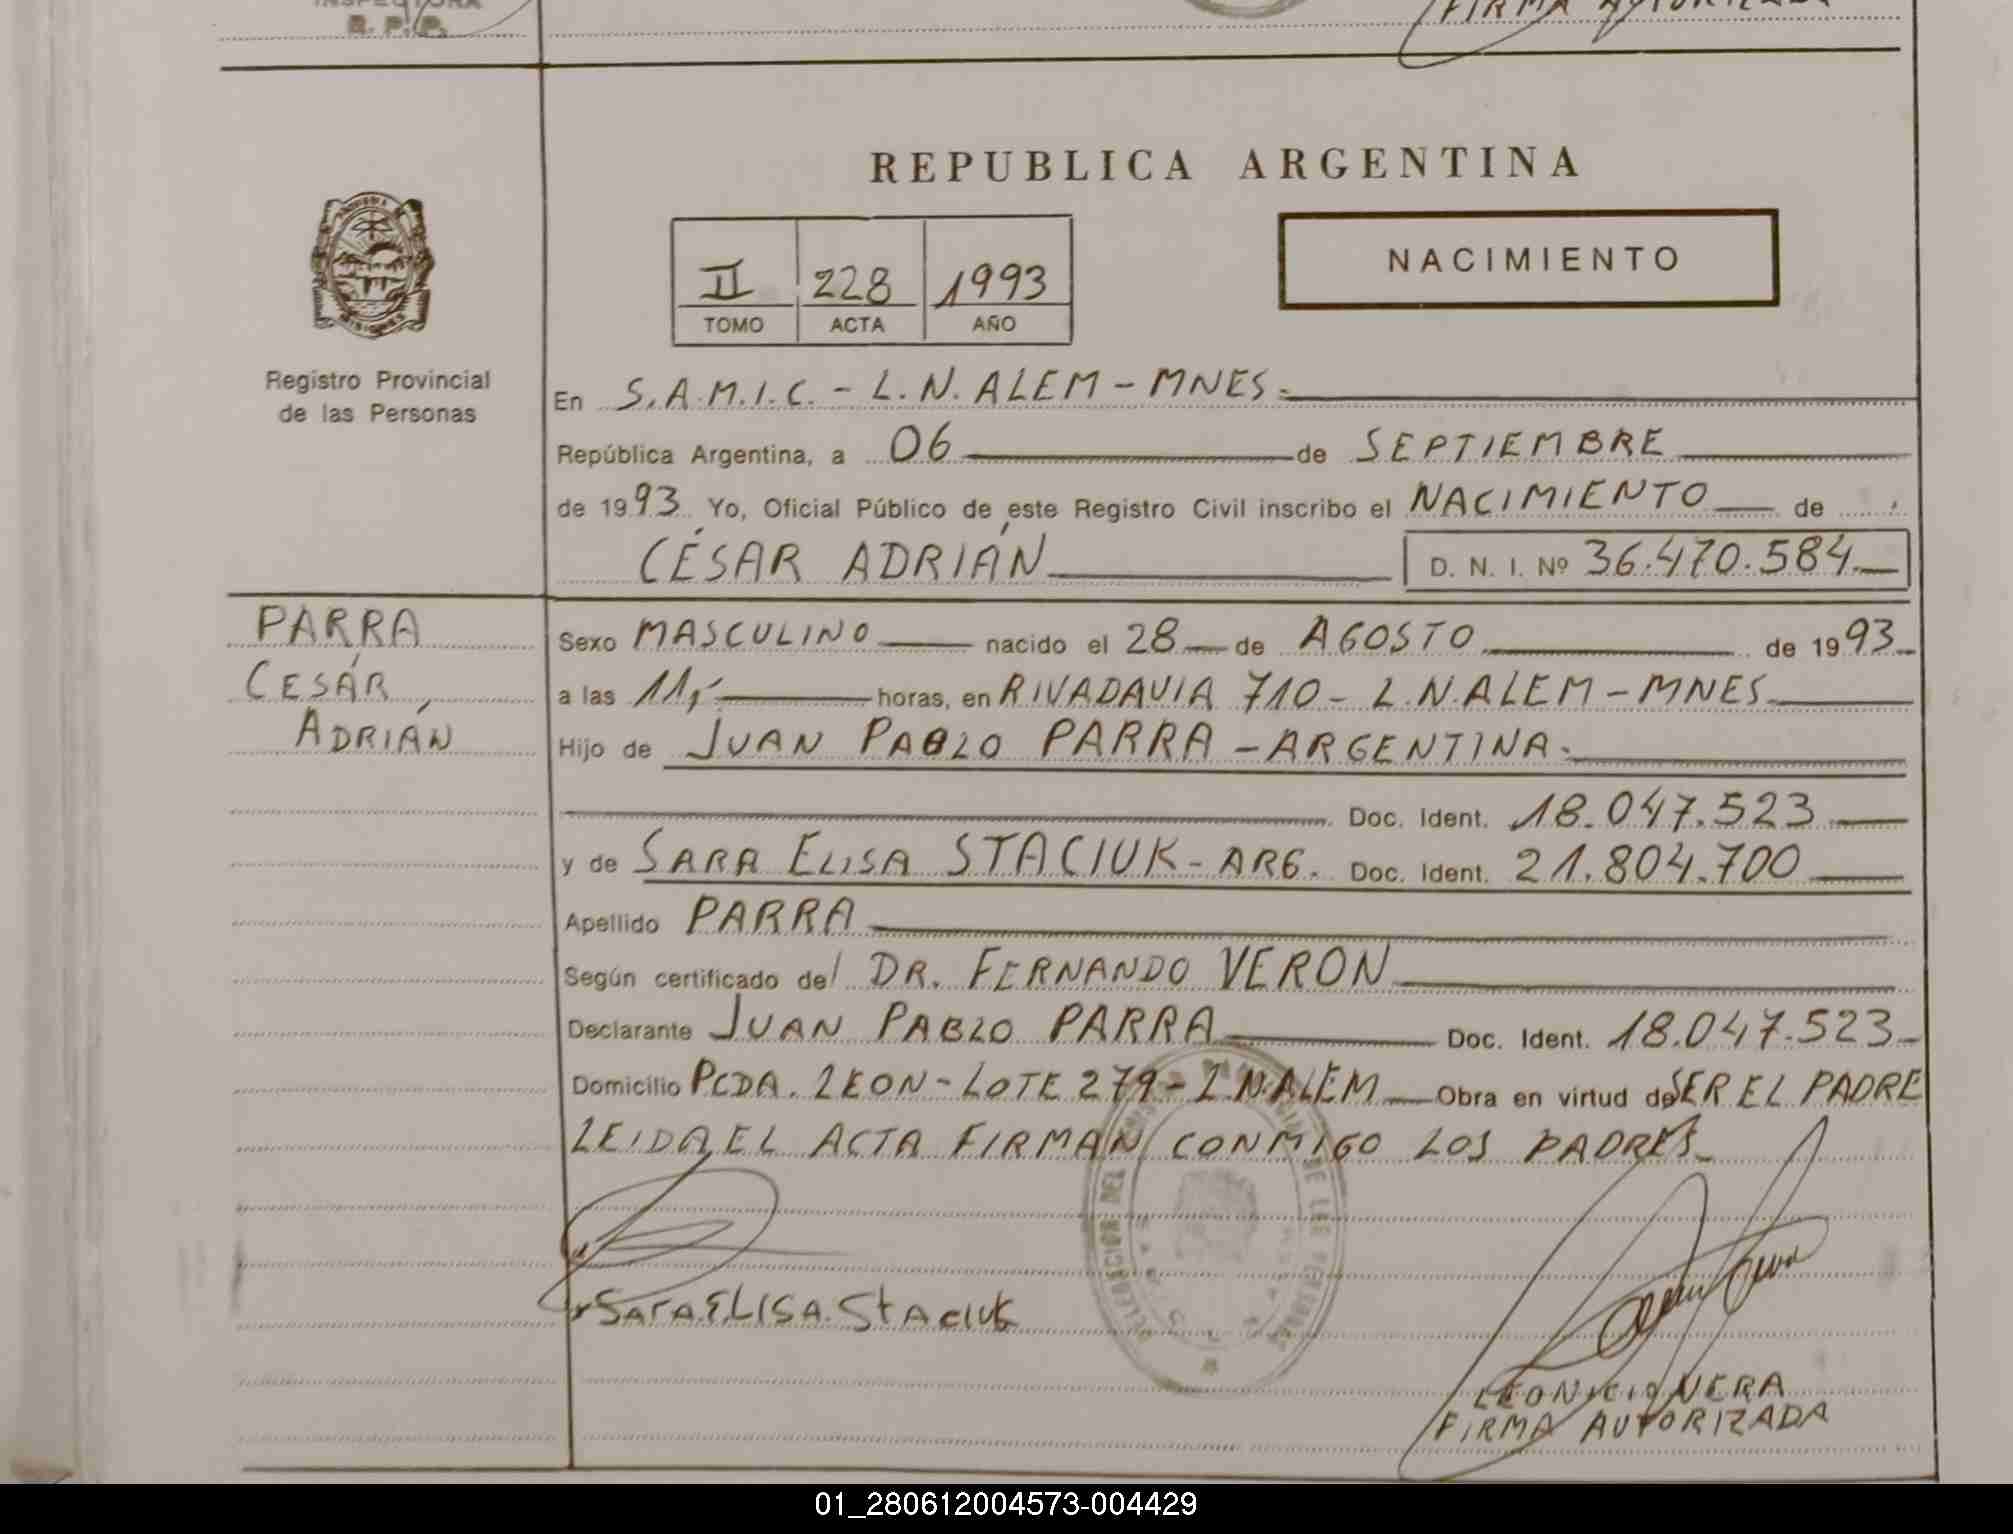 INSPECTORA
R. P. P.
FIRMA AUTORIZADA
REPUBLICA ARGENTINA
II 228 1993
TOMO ACTA AÑO
NACIMIENTO
Registro Provincial
de las Personas
En S.A.M.I.C. - L.N. ALEM - MNES.
República Argentina, a 06 de SEPTIEMBRE
de 1993 Yo, Oficial Público de este Registro Civil inscribo el NACIMIENTO de
CÉSAR ADRIÁN D. N. I. Nº 36.470.584.
PARRA
CESÁR
ADRIÁN
Sexo MASCULINO nacido el 28 de AGOSTO de 1993
a las 11,- horas, en RIVADAVIA 710 - L.N. ALEM - MNES
Hijo de JUAN PABLO PARRA - ARGENTINA.
Doc. Ident. 18.047.523
y de SARA ELISA STACIUK - ARG. Doc. Ident. 21.804.700
Apellido PARRA
Según certificado del DR. FERNANDO VERON
Declarante JUAN PABLO PARRA Doc. Ident. 18.047.523
Domicilio PCDA. LEON - LOTE 279 - L.N. ALEM Obra en virtud de SER EL PADRE
LEIDA EL ACTA FIRMAN CONMIGO LOS PADRES
SARA.ELISA.STACIUK
LEONICIO VERA
FIRMA AUTORIZADA
01_280612004573-004429